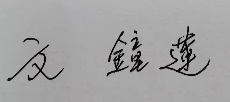 文 鐘蓮